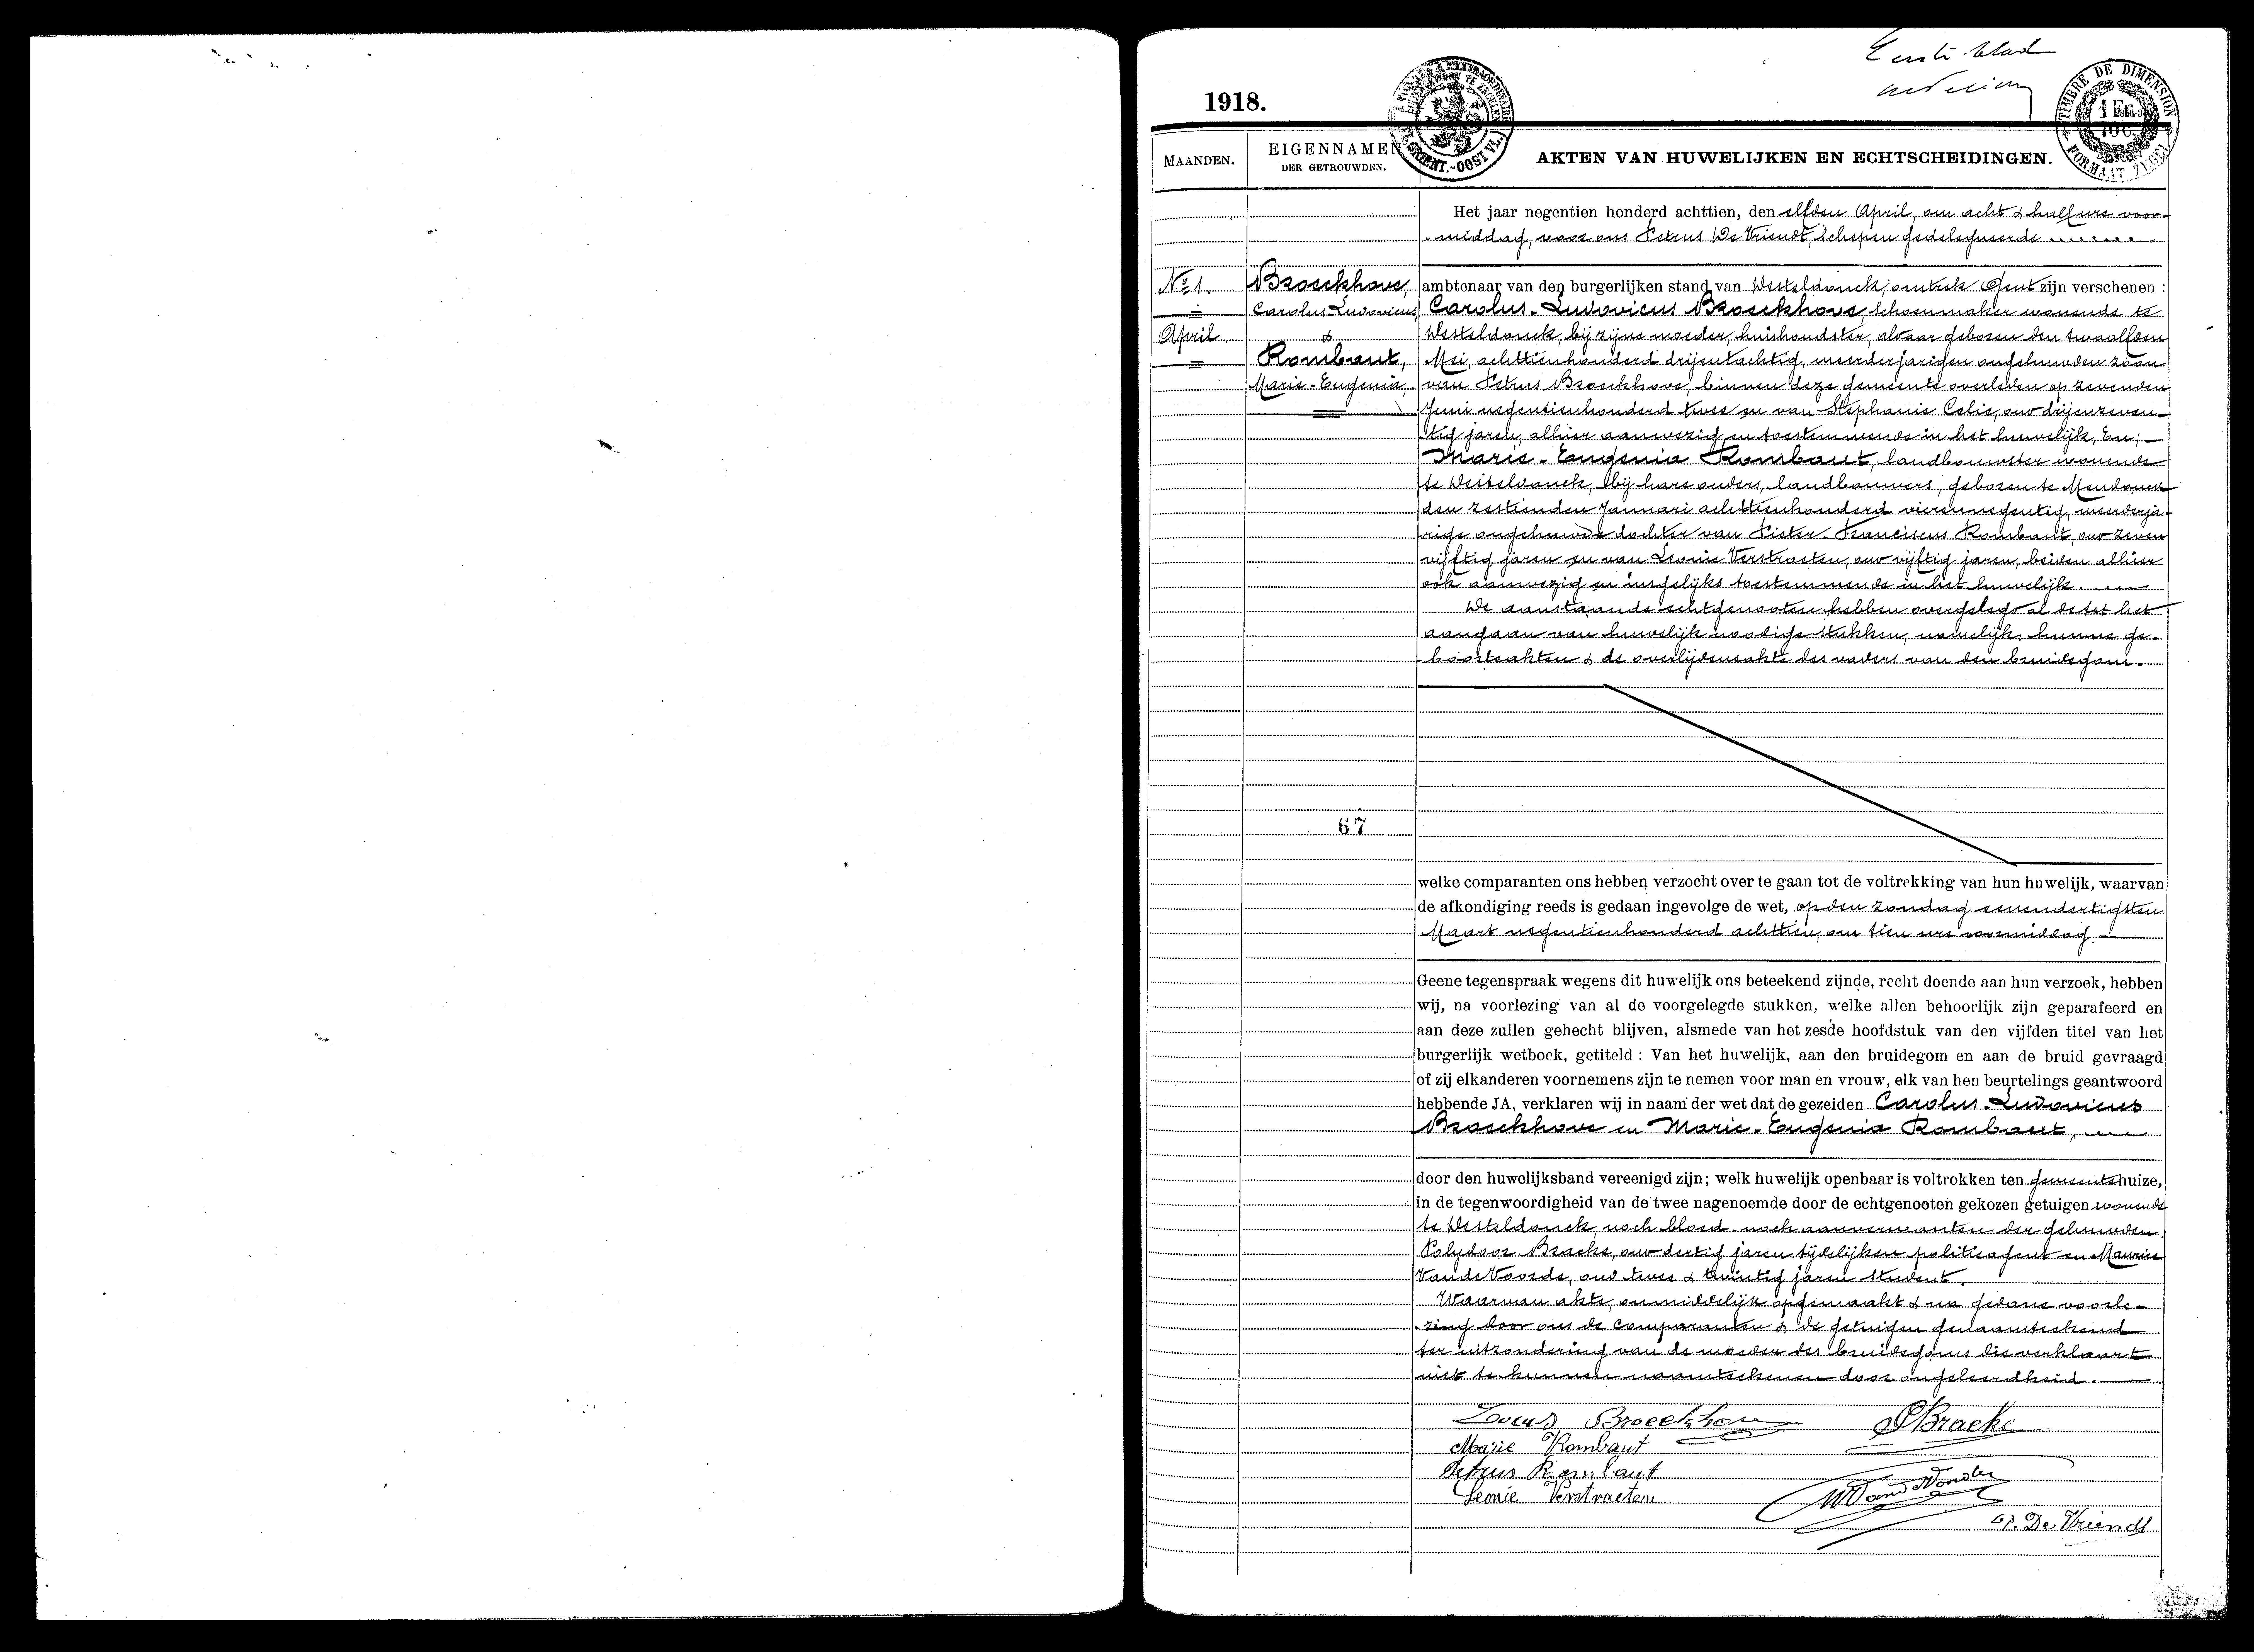 Eerste blad
1918.
TIMBRE DE DIMENSION
1 Fr.
FORMAAT ZEGEL
GENT.-OOST VL.
MAANDEN.
EIGENNAMEN
DER GETROUWDEN.
AKTEN VAN HUWELIJKEN EN ECHTSCHEIDINGEN.
Het jaar negentien honderd achttien, den elfden April, om acht & half ure voor-
middag, voor ons Petrus De Vriendt, schepen gedelegueerde
No 1.
April
Broeckhove,
Carolus Ludovicus,
&
Rombaut,
Marie-Eugenia,
ambtenaar van den burgerlijken stand van Desteldonck, omtrek Gent zijn verschenen :
Carolus-Ludovicus Broeckhove, schoenmaker wonende te
Desteldonck, bij zijne moeder, huishoudster, alwaar geboren den twaalfden
Mei, achttienhonderd drijentachtig, meerderjarigen ongehuwden zoon
van Petrus Broeckhove, binnen deze gemeente overleden op zevenden
Juni negentienhonderd twee en van Stephanie Celie, oud drijenzeven-
tig jaren, alhier aanwezig en toestemmende in het huwelijk, En;
Marie-Eugenia Rombaut, landbouwster wonende
te Desteldonck, bij hare ouders, landbouwers, geboren te Mendonck
den zestienden Januari achttienhonderd vierennegentig, meerderja-
rige ongehuwde dochter van Pieter-Franciscus Rombaut, oud zeven
vijftig jaren en van Leonie Verstraeten, oud vijftig jaren, beiden alhier
ook aanwezig en insgelijks toestemmende in het huwelijk.
De aanstaande echtgenooten hebben overgelegd al de tot het
aangaan van huwelijk noodige stukken, namelijk: hunne ge-
boorteakten & de overlijdensakte des vaders van den bruidegom.
67
welke comparanten ons hebben verzocht over te gaan tot de voltrekking van hun huwelijk, waarvan
de afkondiging reeds is gedaan ingevolge de wet, op den zondag eenendertigsten
Maart negentienhonderd achttien, om tien ure voormiddag.
Geene tegenspraak wegens dit huwelijk ons beteekend zijnde, recht doende aan hun verzoek, hebben
wij, na voorlezing van al de voorgelegde stukken, welke allen behoorlijk zijn geparafeerd en
aan deze zullen gehecht blijven, alsmede van het zesde hoofdstuk van den vijfden titel van het
burgerlijk wetboek, getiteld : Van het huwelijk, aan den bruidegom en aan de bruid gevraagd
of zij elkanderen voornemens zijn te nemen voor man en vrouw, elk van hen beurtelings geantwoord
hebbende JA, verklaren wij in naam der wet dat de gezeiden Carolus-Ludovicus
Broeckhove en Marie-Eugenia Rombaut,
door den huwelijksband vereenigd zijn; welk huwelijk openbaar is voltrokken ten gemeentehuize,
in de tegenwoordigheid van de twee nagenoemde door de echtgenooten gekozen getuigen wonende
te Desteldonck, noch bloed- noch aanverwanten der gehuwden.
Polydoor Braeke, oud dertig jaren tijdelijken politieagent en Maurice
Vande Voorde, oud twee & twintig jaren student.
Waarvan akte, onmiddelijk opgemaakt & na gedane voorle-
zing door ons de comparanten & de getuigen genaamteekend
ter uitzondering van de moeder des bruidegoms die verklaart
niet te kunnen naamteekenen door ongeleerdheid.
Lovies Broeckhove
P Braeke
Marie Rombaut
Petrus Rombaut
Leonie Verstraeten
P. De Vriendt